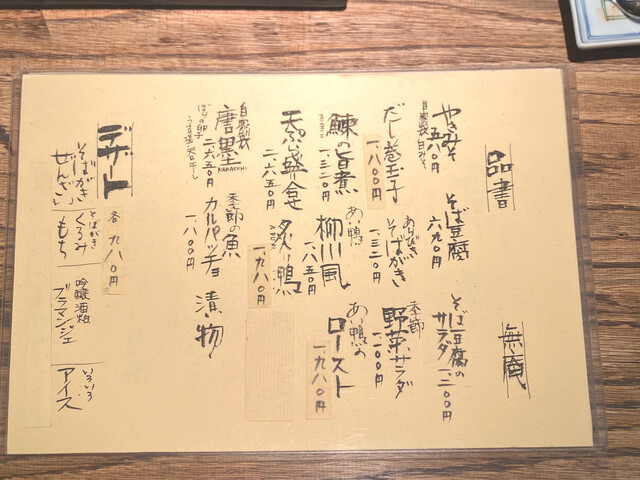 品書
無庵
やきみそ
五八〇円
自家製白みそ
そば豆腐
六九〇円
そば豆腐の
サラダ
一、二〇〇円
だし巻玉子
一、八〇〇円
あらびき
そばがき
一、三二〇円
季節
野菜サラダ
一、二〇〇円
鰊の旨煮
一、三二〇円
あい鴨
柳川風
一、六五〇円
あい鴨の
ロースト
一、九八〇円
天ぷら盛合せ
二、六五〇円
炙り鴨
一、九八〇円
自家製
唐墨
KARASUMI
二、六五〇円
ぼらの卵
うす塩天日干し
季節の魚
カルパッチョ
一、八〇〇円
漬物
デザート
各 九八〇円
そばがき
ぜんざい
そばがき
くるみ
もち
吟醸酒粕
ブラマンジェ
いろいろ
アイス